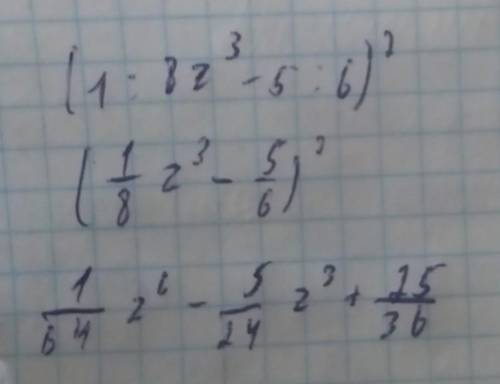 (1 : 8z³ - 5 : 6)²
(1/8 z³ - 5/6)²
1/64 z⁶ - 5/24 z³ + 25/36